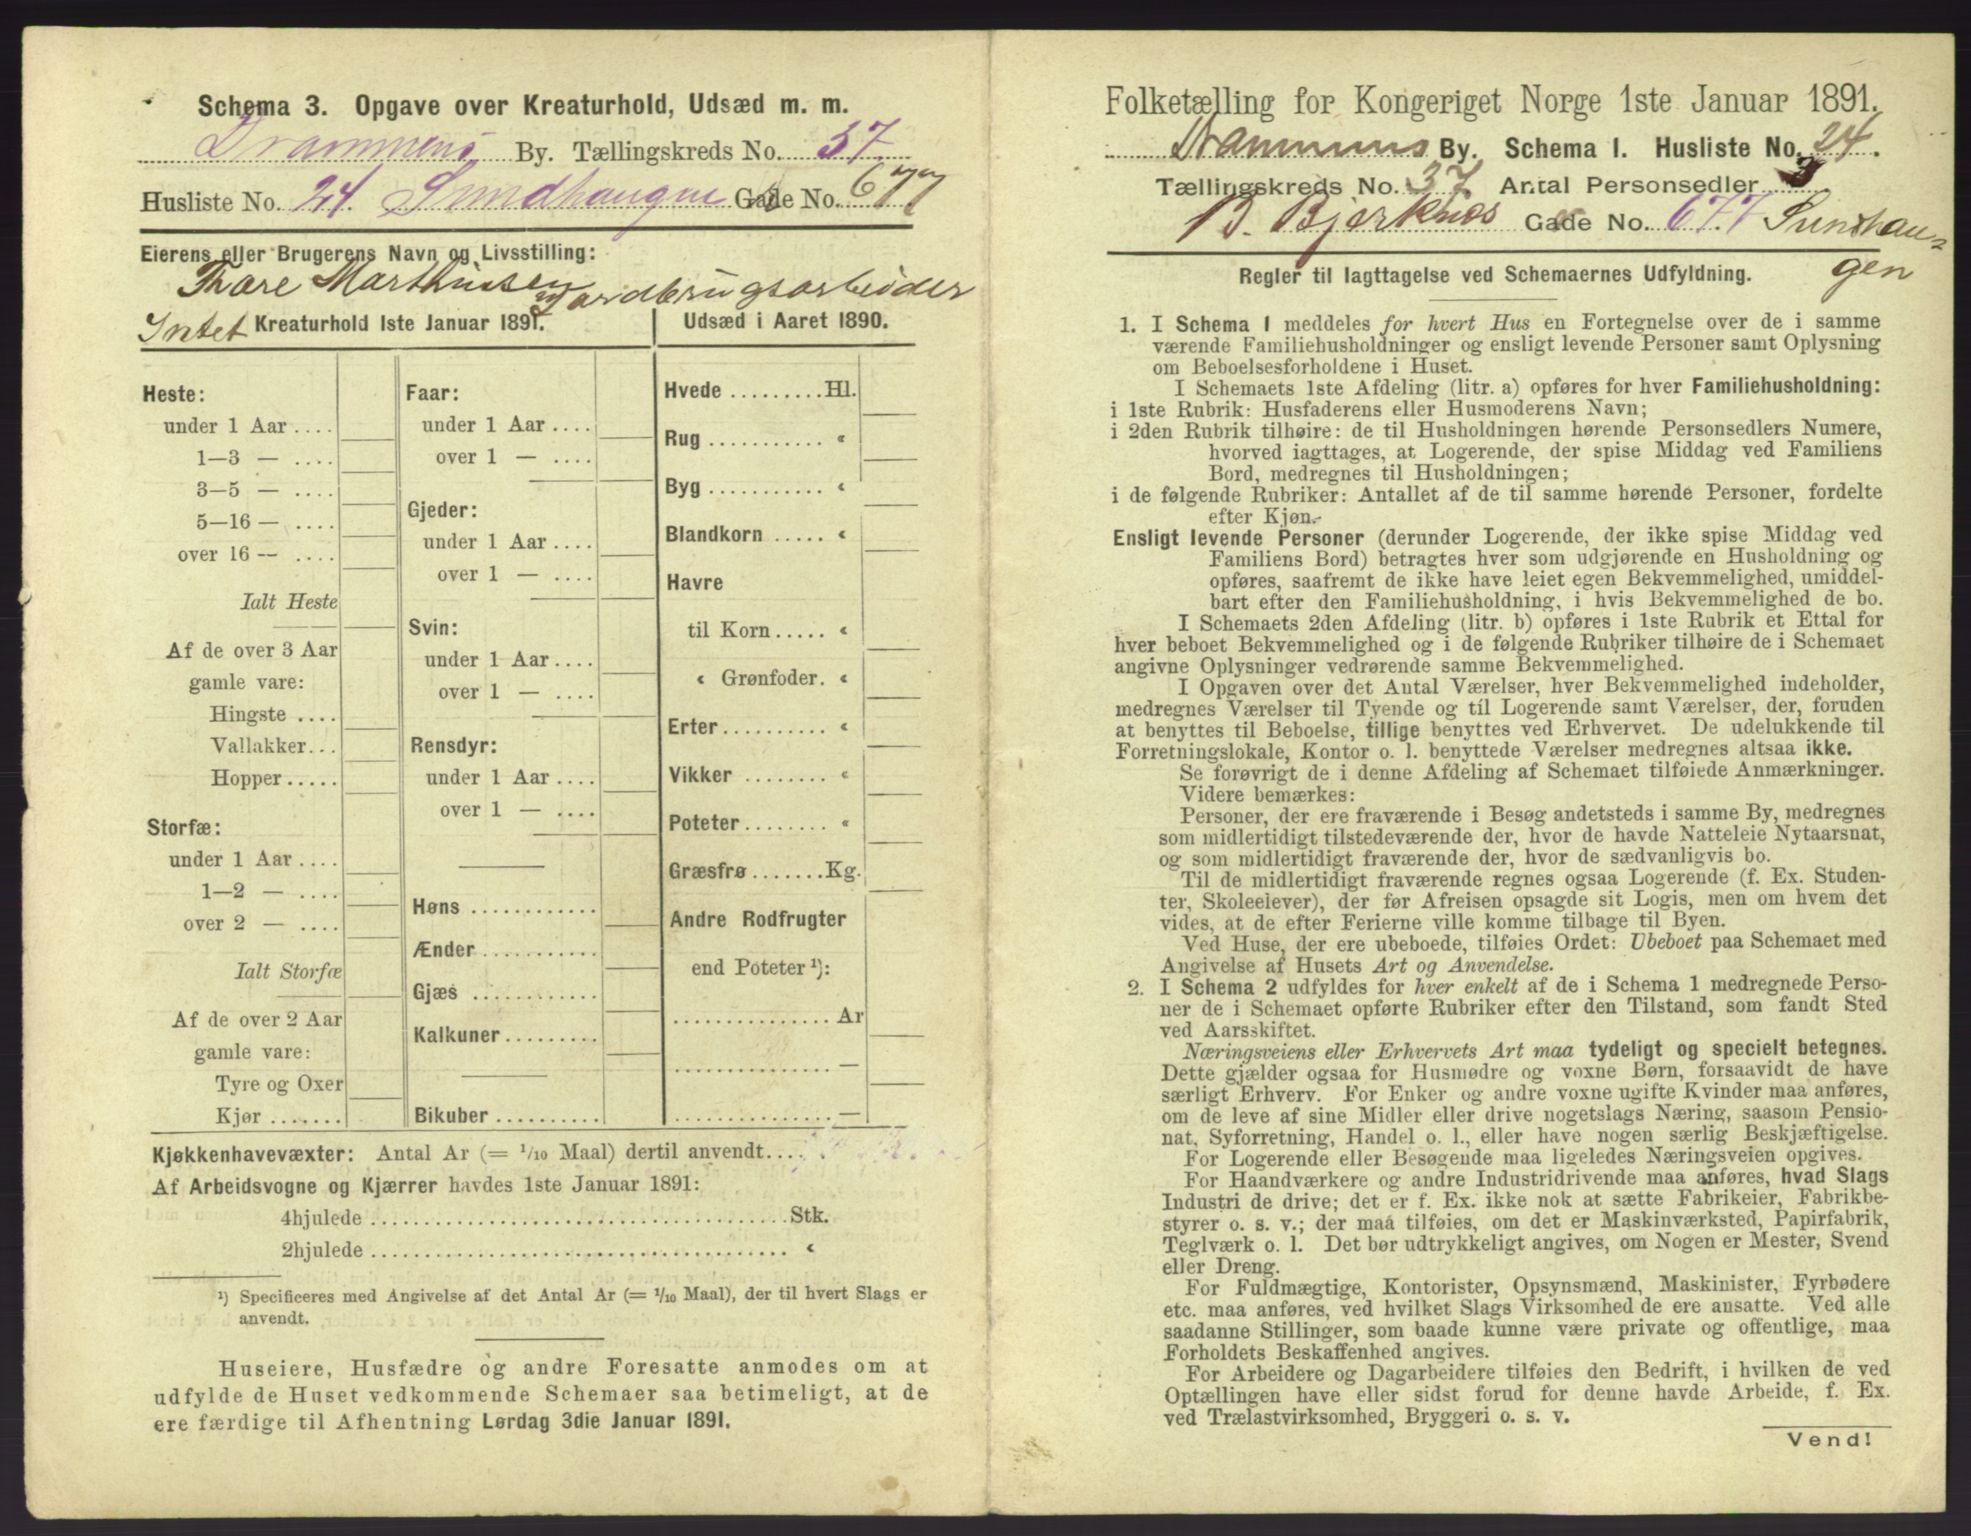 Schema 3. Opgave over Kreaturhold, Udsæd m. m.
Drammens By. Tællingskreds No. 37.
Husliste No. 24. Sundhaugne Gade No. 677
Eierens eller Brugerens Navn og Livsstilling:
Thore Marthissen Jordbrugsarbeider
Intet Kreaturhold 1ste Januar 1891.
Heste:
under 1 Aar ....
1—3 — ....
3—5 — ....
5—16 — ....
over 16 — ....
Ialt Heste
Af de over 3 Aar
gamle vare:
Hingste ....
Vallakker...
Hopper .....
Storfæ:
under 1 Aar ....
1—2 — ....
over 2 — ....
Ialt Storfæ
Af de over 2 Aar
gamle vare:
Tyre og Oxer
Kjør .......
Faar:
under 1 Aar ....
over 1 — ....
Gjeder:
under 1 Aar ....
over 1 — ....
Svin:
under 1 Aar ....
over 1 — ....
Rensdyr:
under 1 Aar ....
over 1 — ....
Høns ............
Ænder ...........
Gjæs ............
Kalkuner .........
Bikuber ..........
Udsæd i Aaret 1890.
Hvede ......... Hl.
Rug ........... «
Byg ........... «
Blandkorn ..... «
Havre
til Korn ..... «
« Grønfoder. «
Erter .......... «
Vikker ......... «
Poteter ........ «
Græsfrø ....... Kg.
Andre Rodfrugter
end Poteter ¹):
............... Ar
............... —
............... —
Kjøkkenhavevæxter: Antal Ar (= 1/10 Maal) dertil anvendt....
Af Arbeidsvogne og Kjærrer havdes 1ste Januar 1891:
4hjulede ........................................ Stk.
2hjulede ........................................ «
¹) Specificeres med Angivelse af det Antal Ar (= 1/10 Maal), der til hvert Slags er
anvendt.
Huseiere, Husfædre og andre Foresatte anmodes om at
udfylde de Huset vedkommende Schemaer saa betimeligt, at de
ere færdige til Afhentning Lørdag 3die Januar 1891.
Folketælling for Kongeriget Norge 1ste Januar 1891.
Drammens By. Schema I. Husliste No. 24.
Tællingskreds No. 37. Antal Personsedler 3.
B. Bjerknes Gade No. 677 Sundhau-
gen
Regler til Iagttagelse ved Schemaernes Udfyldning.
1. I Schema 1 meddeles for hvert Hus en Fortegnelse over de i samme
værende Familiehusholdninger og ensligt levende Personer samt Oplysning
om Beboelsesforholdene i Huset.
I Schemaets 1ste Afdeling (litr. a) opføres for hver Familiehusholdning:
i 1ste Rubrik: Husfaderens eller Husmoderens Navn;
i 2den Rubrik tilhøire: de til Husholdningen hørende Personsedlers Numere,
hvorved iagttages, at Logerende, der spise Middag ved Familiens
Bord, medregnes til Husholdningen;
i de følgende Rubriker: Antallet af de til samme hørende Personer, fordelte
efter Kjøn.
Ensligt levende Personer (derunder Logerende, der ikke spise Middag ved
Familiens Bord) betragtes hver som udgjørende en Husholdning og
opføres, saafremt de ikke have leiet egen Bekvemmelighed, umiddel-
bart efter den Familiehusholdning, i hvis Bekvemmelighed de bo.
I Schemaets 2den Afdeling (litr. b) opføres i 1ste Rubrik et Ettal for
hver beboet Bekvemmelighed og i de følgende Rubriker tilhøire de i Schemaet
angivne Oplysninger vedrørende samme Bekvemmelighed.
I Opgaven over det Antal Værelser, hver Bekvemmelighed indeholder,
medregnes Værelser til Tyende og til Logerende samt Værelser, der, foruden
at benyttes til Beboelse, tillige benyttes ved Erhvervet. De udelukkende til
Forretningslokale, Kontor o. l. benyttede Værelser medregnes altsaa ikke.
Se forøvrigt de i denne Afdeling af Schemaet tilføiede Anmærkninger.
Videre bemærkes:
Personer, der ere fraværende i Besøg andetsteds i samme By, medregnes
som midlertidigt tilstedeværende der, hvor de havde Natteleie Nytaarsnat,
og som midlertidigt fraværende der, hvor de sædvanligvis bo.
Til de midlertidigt fraværende regnes ogsaa Logerende (f. Ex. Studen-
ter, Skoleelever), der før Afreisen opsagde sit Logis, men om hvem det
vides, at de efter Ferierne ville komme tilbage til Byen.
Ved Huse, der ere ubeboede, tilføies Ordet: Ubeboet paa Schemaet med
Angivelse af Husets Art og Anvendelse.
2. I Schema 2 udfyldes for hver enkelt af de i Schema 1 medregnede Perso-
ner de i Schemaet opførte Rubriker efter den Tilstand, som fandt Sted
ved Aarsskiftet.
Næringsveiens eller Erhvervets Art maa tydeligt og specielt betegnes.
Dette gjælder ogsaa for Husmødre og voxne Børn, forsaavidt de have
særligt Erhverv. For Enker og andre voxne ugifte Kvinder maa anføres,
om de leve af sine Midler eller drive nogetslags Næring, saasom Pensio-
nat, Syforretning, Handel o. l., eller have nogen særlig Beskjæftigelse.
For Logerende eller Besøgende maa ligeledes Næringsveien opgives.
For Haandværkere og andre Industridrivende maa anføres, hvad Slags
Industri de drive; det er f. Ex. ikke nok at sætte Fabrikeier, Fabrikbe-
styrer o. s. v.; der maa tilføies, om det er Maskinværksted, Papirfabrik,
Teglværk o. l. Det bør udtrykkeligt angives, om Nogen er Mester, Svend
eller Dreng.
For Fuldmægtige, Kontorister, Opsynsmænd, Maskinister, Fyrbødere
etc. maa anføres, ved hvilket Slags Virksomhed de ere ansatte. Ved alle
saadanne Stillinger, som baade kunne være private og offentlige, maa
Forholdets Beskaffenhed angives.
For Arbeidere og Dagarbeidere tilføies den Bedrift, i hvilken de ved
Optællingen have eller sidst forud for denne havde Arbeide, f. Ex.
ved Trælastvirksomhed, Bryggeri o. s. v.
Vend!